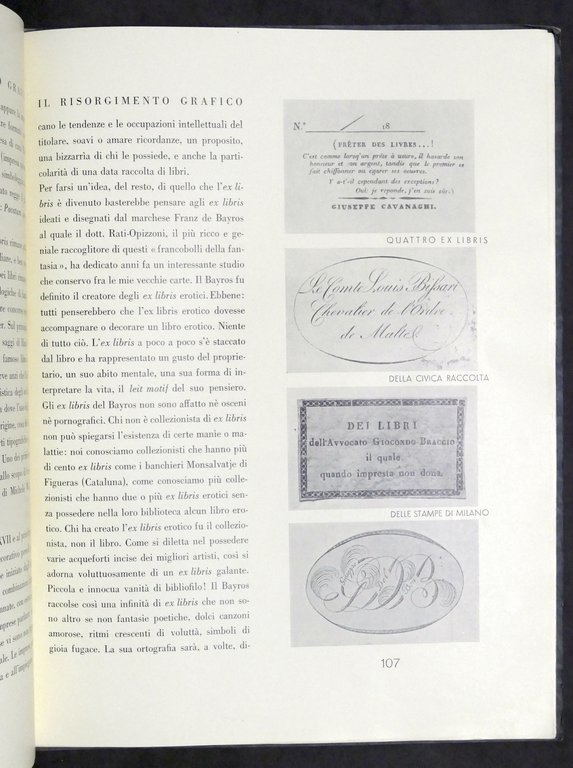 IL RISORGIMENTO GRAFICO
cano le tendenze e le occupazioni intellettuali del
titolare, soavi o amare ricordanze, un proposito,
una bizzarria di chi le possiede, e anche la parti-
colarità di una data raccolta di libri.
Per farsi un'idea, del resto, di quello che l'ex li-
bris è divenuto basterebbe pensare agli ex libris
ideati e disegnati dal marchese Franz de Bayros
al quale il dott. Rati-Opizzoni, il più ricco e ge-
niale raccoglitore di questi « francobolli della fan-
tasia », ha dedicato anni fa un interessante studio
che conservo fra le mie vecchie carte. Il Bayros fu
definito il creatore degli ex libris erotici. Ebbene:
tutti penserebbero che l'ex libris erotico dovesse
accompagnare o decorare un libro erotico. Niente
di tutto ciò. L'ex libris a poco a poco s'è staccato
dal libro e ha rappresentato un gusto del proprie-
tario, un suo abito mentale, una sua forma di in-
terpretare la vita, il leit motif del suo pensiero.
Gli ex libris del Bayros non sono affatto nè osceni
nè pornografici. Chi non è collezionista di ex libris
non può spiegarsi l'esistenza di certe manie o ma-
lattie: noi conosciamo collezionisti che hanno più
di cento ex libris come i banchieri Monsalvatje di
Figueras (Cataluna), come conosciamo più colle-
zionisti che hanno due o più ex libris erotici sen-
za possedere nella loro biblioteca alcun libro ero-
tico. Chi ha creato l'ex libris erotico fu il collezio-
nista, non il libro. Come si diletta nel possedere
varie acqueforti incise dei migliori artisti, così si
adorna voluttuosamente di un ex libris galante.
Piccola e innocua vanità di bibliofilo! Il Bayros
raccolse così una infinità di ex libris che non so-
no altro se non fantasie poetiche, dolci canzoni
amorose, ritmi crescenti di voluttà, simboli di
gioia fugace. La sua ortografia sarà, a volte, di-
N.° 18
(PRÊTER DES LIVRES...!
C'est comme lorsqu'on prête à usure, il hasarde son
honneur et on argent, tandis que le premier se
fait chiffonner ou égarer ses oeuvres.
Y a-t'il cependant des exceptions?
Oui: je reponds, j'en suis sûr:)
GIUSEPPE CAVANAGHI.
QUATTRO EX LIBRIS
Le Comte Louis Bissari
Chevalier de l'Ordre
de Malte
DELLA CIVICA RACCOLTA
DEI LIBRI
dell'Avvocato GIOCONDO BRACCIO
il quale
quando impresta non dona.
DELLE STAMPE DI MILANO
107